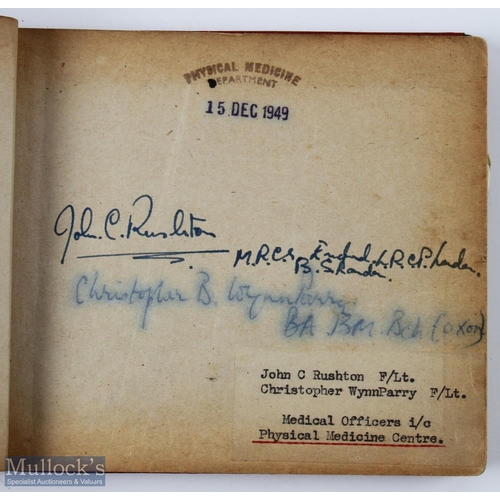 PHYSICAL MEDICINE
DEPARTMENT
15 DEC 1949
John. C. Rushton
M.R.C.S. England, L.R.C.P. London.
B.S. London.
Christopher B. Wynn Parry
BA BM. Bch (oxon)
John C Rushton F/Lt.
Christopher WynnParry F/Lt.
Medical Officers i/c
Physical Medicine Centre.
Mullock's
Specialist Auctioneers & Valuers